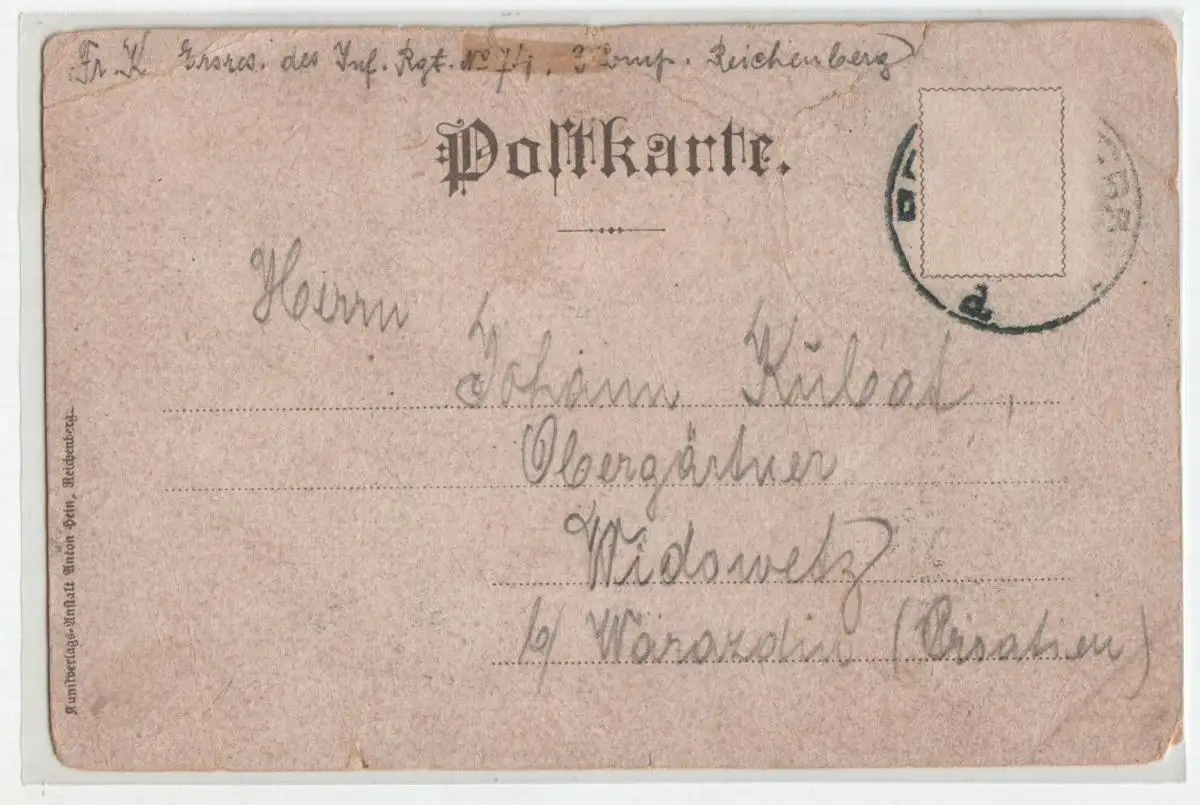 Fr. K Ersres. des Inf. Rgt. No 74, 3 Comp. Reichenberg
Postkarte.
Herrn
Johann Kubat,
Obergärtner
Widowetz
b/ Warazdin (Croatien)
Kunstverlags-Anstalt Anton Hein, Reichenberg.